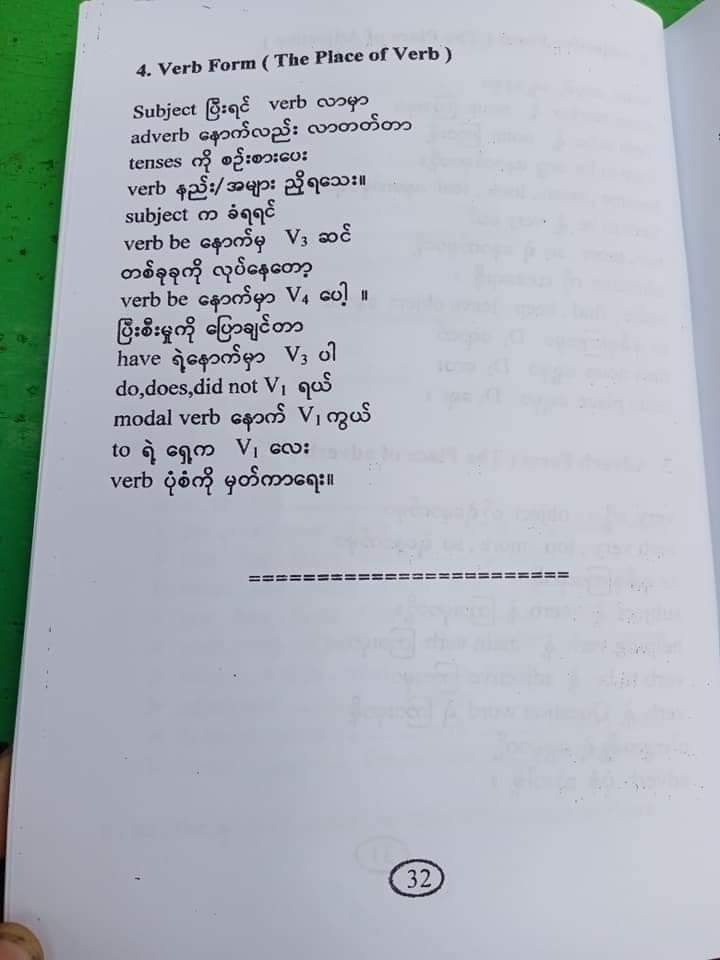 4. Verb Form ( The Place of Verb )
Subject ပြီးရင် verb လာမှာ
adverb နောက်လည်း လာတတ်တာ
tenses ကို စဉ်းစားပေး
verb နည်း/အများ ညှိရသေး။
subject က ခံရရင်
verb be နောက်မှ V₃ ဆင်
တစ်ခုခုကို လုပ်နေတော့
verb be နောက်မှာ V₄ ပေါ့ ။
ပြီးစီးမှုကို ပြောချင်တာ
have ရဲ့နောက်မှာ V₃ ပါ
do,does,did not V₁ ရယ်
modal verb နောက် V₁ ကွယ်
to ရဲ့ ရှေ့က V₁ လေး
verb ပုံစံကို မှတ်ကာရေး။
========================
32